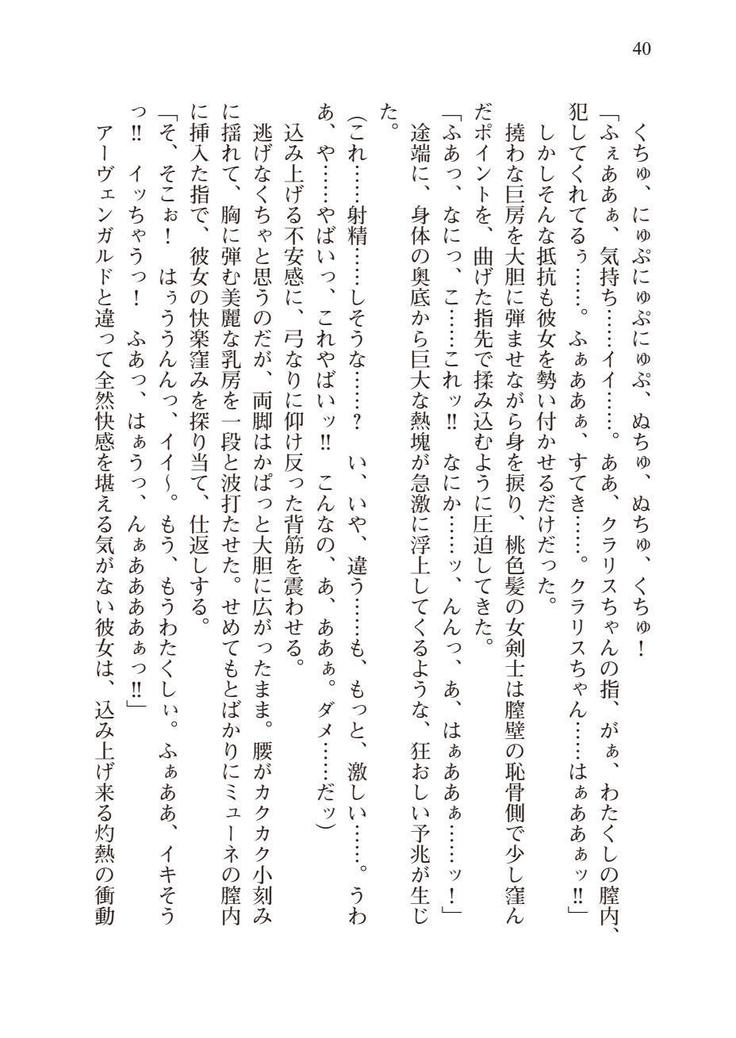 40
くちゅ、にゅぷにゅぷにゅぷ、ぬちゅ、ぬちゅ、くちゅ！
「ふぇああぁ、気持ち……イイ……。ああ、クラリスちゃんの指、がぁ、わたくしの膣内、
犯してくれてるぅ……。ふぁああぁ、すてき……。クラリスちゃん……はぁああぁッ‼」
しかしそんな抵抗も彼女を勢い付かせるだけだった。
撓わな巨房を大胆に弾ませながら身を捩り、桃色髪の女剣士は膣壁の恥骨側で少し窪ん
だポイントを、曲げた指先で揉み込むように圧迫してきた。
「ふあっ、なにっ、こ……これッ‼　なにか……ッ、んんっ、あ、はぁああぁ……ッ！」
途端に、身体の奥底から巨大な熱塊が急激に浮上してくるような、狂おしい予兆が生じ
た。
（これ……射精……しそうな……？　い、いや、違う……も、もっと、激しい……。うわ
あ、や……やばいっ、これやばいッ‼　こんなの、あ、ああぁ。ダメ……だッ）
込み上げる不安感に、弓なりに仰け反った背筋を震わせる。
逃げなくちゃと思うのだが、両脚はかぱっと大胆に広がったまま。腰がカクカク小刻み
に揺れて、胸に弾む美麗な乳房を一段と波打たせた。せめてもとばかりにミューネの膣内
に挿入た指で、彼女の快楽窪みを探り当て、仕返しする。
「そ、そこぉ！　はぅううんんっ、イイ～。もう、もうわたくしぃ。ふぁああ、イキそう
っ‼　イッちゃうっ！　ふあっ、はぁうっ、んぁああああぁっ‼」
アーヴェンガルドと違って全然快感を堪える気がない彼女は、込み上げ来る灼熱の衝動